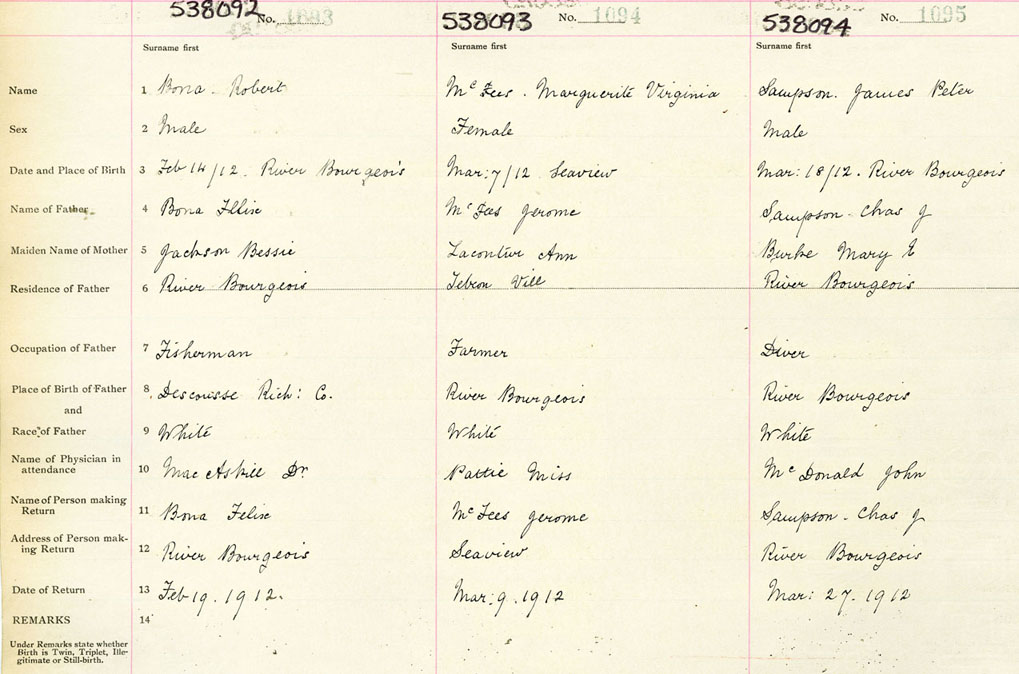 538092 No. 1093 538093 No. 1094 538094 No. 1095
Surname first Surname first Surname first
Name 1 Bona . Robert McFees . Marguerite Virginia Sampson . James Peter
Sex 2 Male Female Male
Date and Place of Birth 3 Feb 14/12 . River Bourgeois Mar: 7/12 Seaview Mar: 18/12 . River Bourgeois
Name of Father 4 Bona McFees Jerome Sampson - Chas J
Maiden Name of Mother 5 Jackson Bessie Ann Burke Mary E
Residence of Father 6 River Bourgeois River Bourgeois
Occupation of Father 7 Fisherman Farmer Diver
Place of Birth of Father 8 Descousse Rich: Co. River Bourgeois River Bourgeois
and
Race of Father 9 White White White
Name of Physician in
attendance 10 MacAskill Dr. Pattie Miss McDonald John
Name of Person making
Return 11 Bona Felix McFees Jerome Sampson - Chas J
Address of Person mak-
ing Return 12 River Bourgeois Seaview River Bourgeois
Date of Return 13 Feb 19 . 1912 . Mar: 9 . 1912 Mar: 27 . 1912
REMARKS 14
Under Remarks state whether
Birth is Twin, Triplet, Ille-
gitimate or Still-birth.